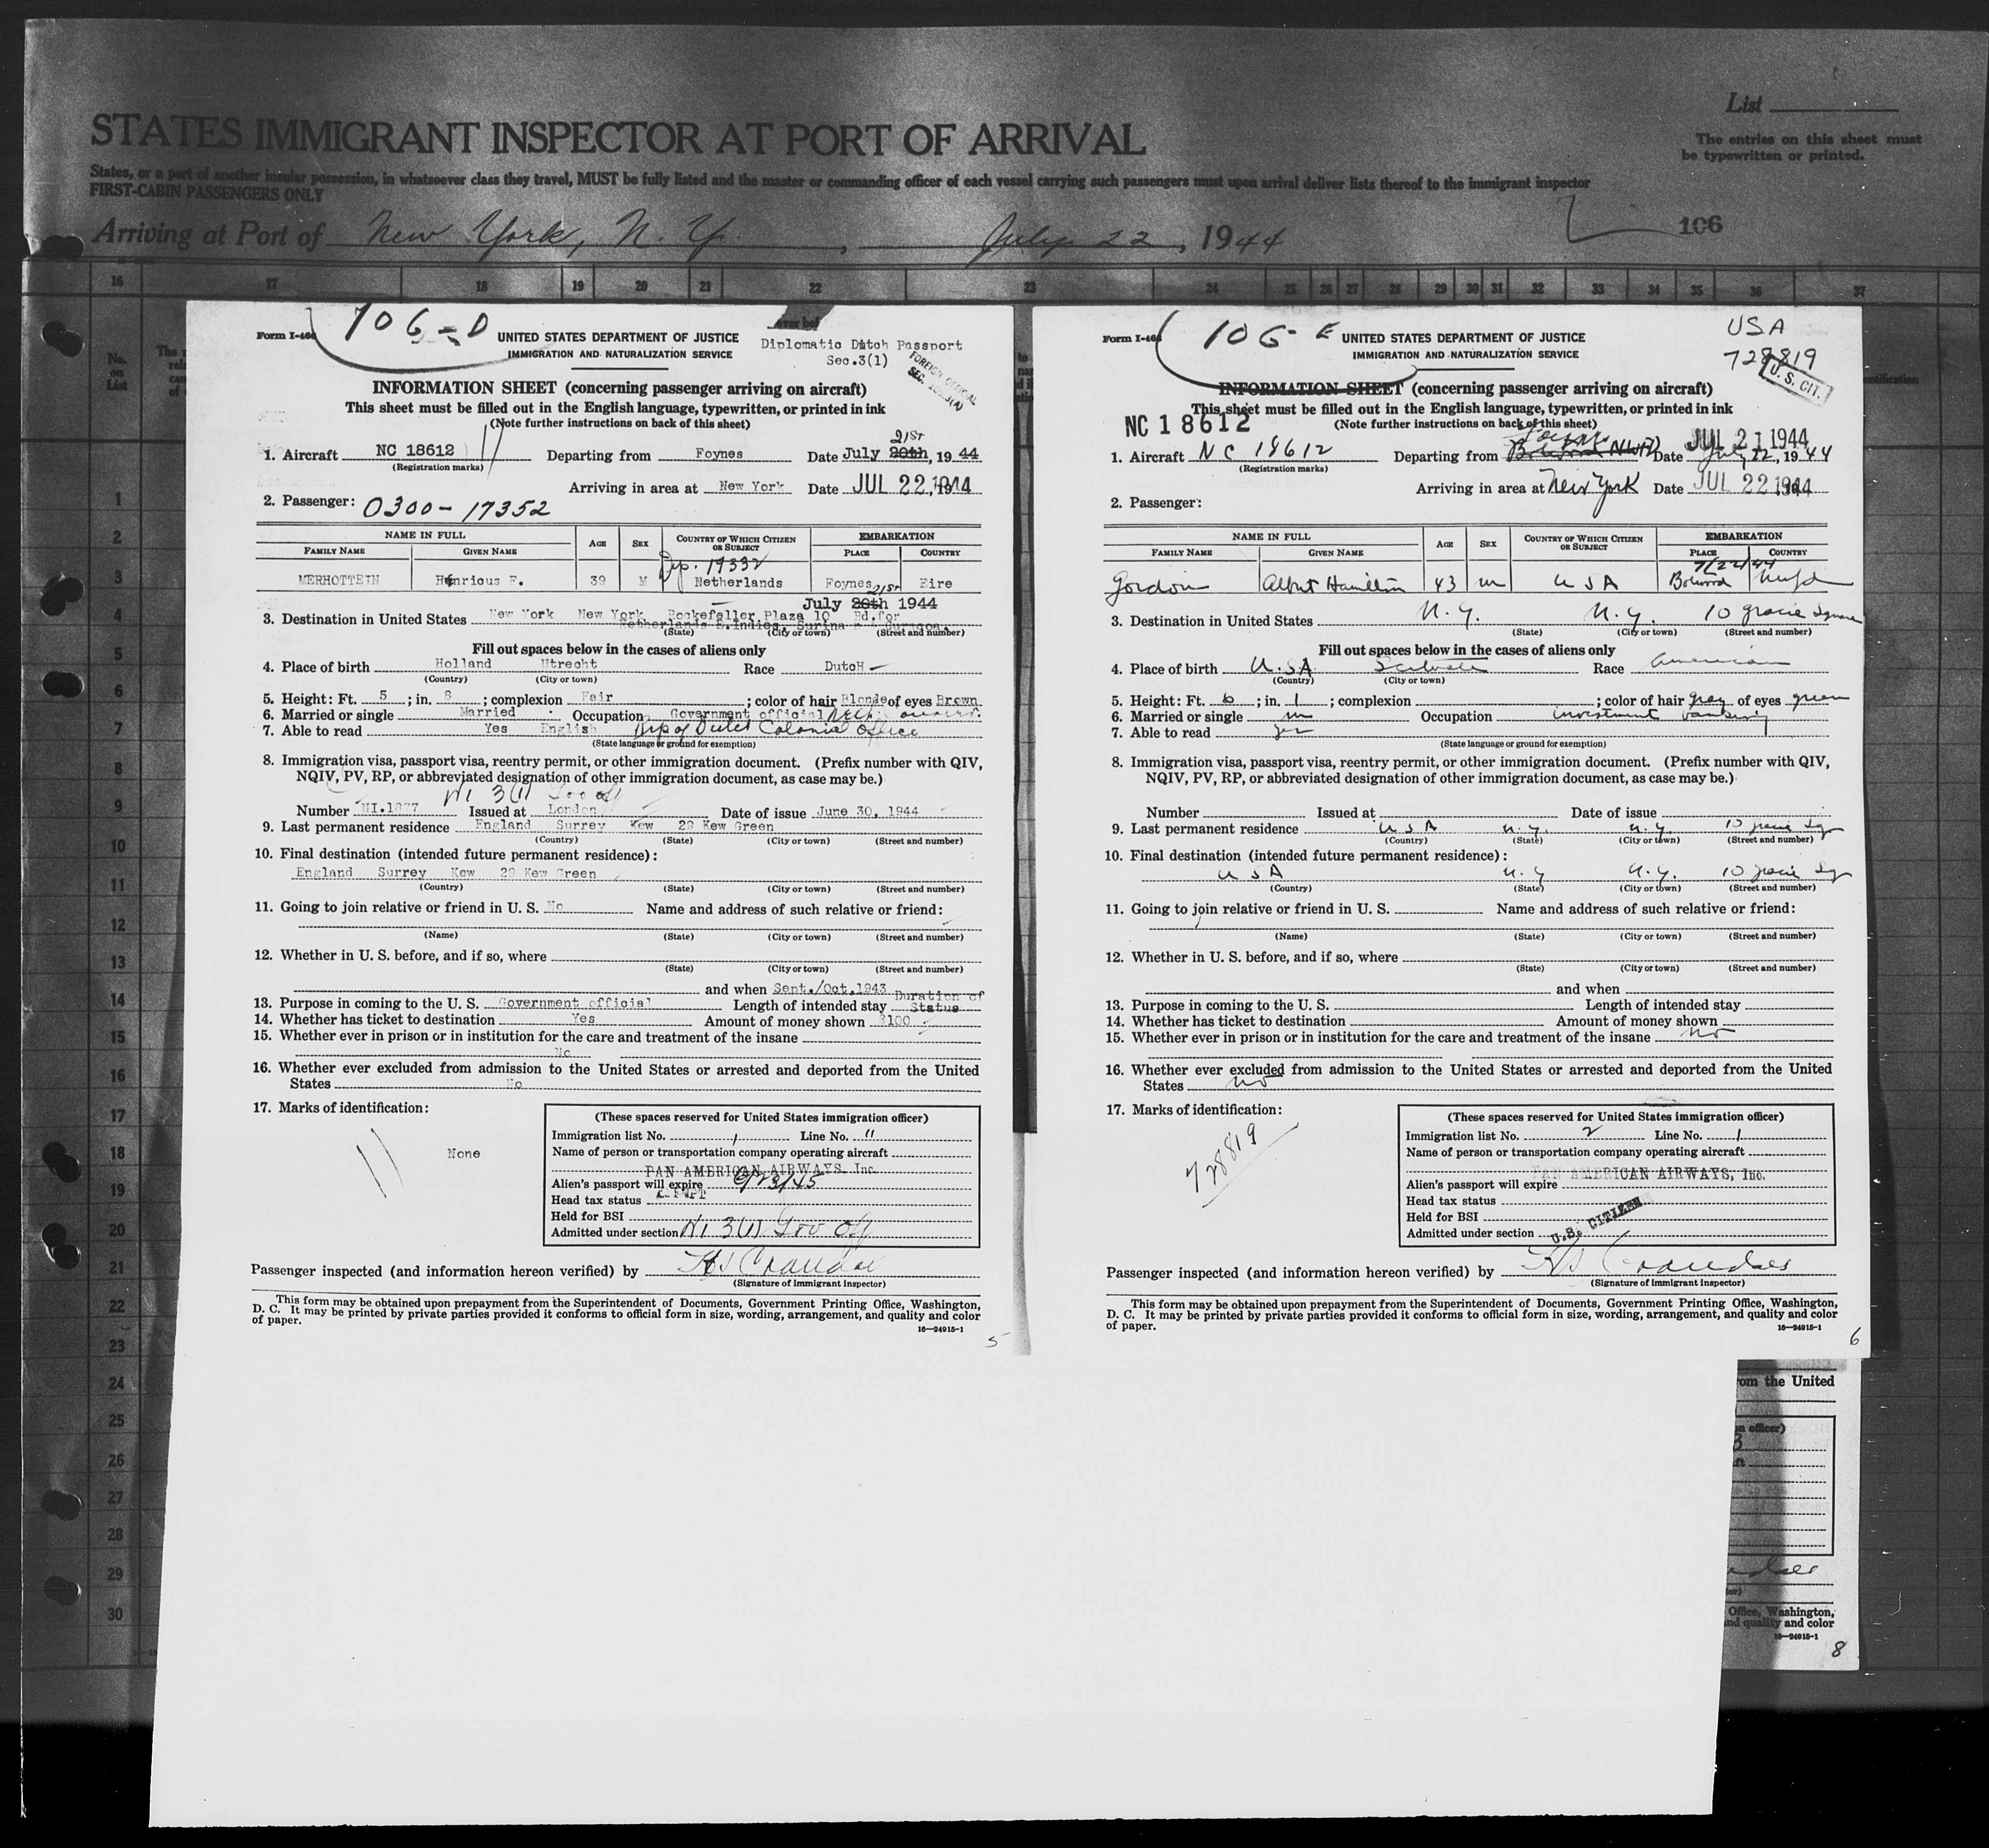 List
STATES IMMIGRANT INSPECTOR AT PORT OF ARRIVAL
The entries on this sheet must
be typewritten or printed.
States, or a port of another insular possession, in whatsoever class they travel, MUST be fully listed and the master or commanding officer of each vessel carrying such passengers must upon arrival deliver lists thereof to the immigrant inspector
FIRST-CABIN PASSENGERS ONLY
Arriving at Port of New York, N. Y., July 22, 1944
106
16 17 18 19 20 21 22 23 24 25 26 27 28 29 30 31 32 33 34 35 36 37
No. on List
1
2
3
4
5
6
7
8
9
10
11
12
13
14
15
16
17
18
19
20
21
22
23
24
25
26
27
28
29
30
106-D
Form I-466
UNITED STATES DEPARTMENT OF JUSTICE
IMMIGRATION AND NATURALIZATION SERVICE
Diplomatic Dutch Passport
Sec.3(1)
FOREIGN OFFICIAL
INFORMATION SHEET (concerning passenger arriving on aircraft)
This sheet must be filled out in the English language, typewritten, or printed in ink
(Note further instructions on back of this sheet)
21ST
1. Aircraft NC 18612 Departing from Foynes Date July 20th, 19 44
(Registration marks)
Arriving in area at New York Date JUL 22 1944
2. Passenger: 0300-17352
NAME IN FULL AGE SEX COUNTRY OF WHICH CITIZEN OR SUBJECT EMBARKATION
FAMILY NAME GIVEN NAME PLACE COUNTRY
Dip. 19332
MERHOTTEIN Henricus F. 39 M Netherlands Foynes Eire
21st
July 20th 1944
3. Destination in United States New York New York Rockefeller Plaza 10 Bd.for
Netherlands E.Indies, Surina
(State) (City or town) (Street and number)
Fill out spaces below in the cases of aliens only
4. Place of birth Holland Utrecht Race DutcH
(Country) (City or town)
5. Height: Ft. 5; in. 8; complexion Fair; color of hair Blonde of eyes Brown
6. Married or single Married Occupation Government official
7. Able to read Yes English Dep of Dutch Colonial Office
(State language or ground for exemption)
8. Immigration visa, passport visa, reentry permit, or other immigration document. (Prefix number with QIV,
NQIV, PV, RP, or abbreviated designation of other immigration document, as case may be.)
NI 3(1) Gov off
Number NI.1877 Issued at London Date of issue June 30, 1944
9. Last permanent residence England Surrey Kew 29 Kew Green
(Country) (State) (City or town) (Street and number)
10. Final destination (intended future permanent residence):
England Surrey Kew 29 Kew Green
(Country) (State) (City or town) (Street and number)
11. Going to join relative or friend in U. S. No Name and address of such relative or friend:
(Name) (State) (City or town) (Street and number)
12. Whether in U. S. before, and if so, where
(State) (City or town) (Street and number)
and when Sept./Oct.1943
13. Purpose in coming to the U. S. Government official Length of intended stay Duration of Status
14. Whether has ticket to destination Yes Amount of money shown $100
15. Whether ever in prison or in institution for the care and treatment of the insane
No
16. Whether ever excluded from admission to the United States or arrested and deported from the United
States No
17. Marks of identification:
None
(These spaces reserved for United States immigration officer)
Immigration list No. 1 Line No. 11
Name of person or transportation company operating aircraft
PAN AMERICAN AIRWAYS Inc.
Alien's passport will expire 6/23/45
Head tax status EXEMPT
Held for BSI
Admitted under section NI 3(1) Gov Off
Passenger inspected (and information hereon verified) by HS Crandall
(Signature of immigrant inspector)
This form may be obtained upon prepayment from the Superintendent of Documents, Government Printing Office, Washington,
D. C. It may be printed by private parties provided it conforms to official form in size, wording, arrangement, and quality and color
of paper.
16—24915-1
5
106-E
Form I-466
UNITED STATES DEPARTMENT OF JUSTICE
IMMIGRATION AND NATURALIZATION SERVICE
USA
728819
U. S. CIT.
INFORMATION SHEET (concerning passenger arriving on aircraft)
This sheet must be filled out in the English language, typewritten, or printed in ink
(Note further instructions on back of this sheet)
NC 18612
Foynes JUL 21 1944
1. Aircraft NC 18612 Departing from Botwood Nwfd Date July 22, 1944
(Registration marks)
Arriving in area at New York Date JUL 22 1944
2. Passenger:
NAME IN FULL AGE SEX COUNTRY OF WHICH CITIZEN OR SUBJECT EMBARKATION
FAMILY NAME GIVEN NAME PLACE COUNTRY
7/22/44
Gordon Albert Hamilton 43 m USA Botwood Nwfd
3. Destination in United States N.Y. N.Y. 10 Gracie Square
(State) (City or town) (Street and number)
Fill out spaces below in the cases of aliens only
4. Place of birth U.S.A. Scituate Race American
(Country) (City or town)
5. Height: Ft. 6; in. 1; complexion ; color of hair gray of eyes green
6. Married or single m Occupation investment banking
7. Able to read yes
(State language or ground for exemption)
8. Immigration visa, passport visa, reentry permit, or other immigration document. (Prefix number with QIV,
NQIV, PV, RP, or abbreviated designation of other immigration document, as case may be.)
Number Issued at Date of issue
9. Last permanent residence USA N.Y. N.Y. 10 Gracie Sq
(Country) (State) (City or town) (Street and number)
10. Final destination (intended future permanent residence):
USA N.Y N.Y. 10 Gracie Sq
(Country) (State) (City or town) (Street and number)
11. Going to join relative or friend in U. S. Name and address of such relative or friend:
(Name) (State) (City or town) (Street and number)
12. Whether in U. S. before, and if so, where
(State) (City or town) (Street and number)
and when
13. Purpose in coming to the U. S. Length of intended stay
14. Whether has ticket to destination Amount of money shown
15. Whether ever in prison or in institution for the care and treatment of the insane no
16. Whether ever excluded from admission to the United States or arrested and deported from the United
States no
17. Marks of identification:
728819
(These spaces reserved for United States immigration officer)
Immigration list No. 2 Line No. 1
Name of person or transportation company operating aircraft
PAN AMERICAN AIRWAYS, Inc.
Alien's passport will expire
Head tax status
Held for BSI
Admitted under section U.S. CITIZEN
Passenger inspected (and information hereon verified) by HS Crandall
(Signature of immigrant inspector)
This form may be obtained upon prepayment from the Superintendent of Documents, Government Printing Office, Washington,
D. C. It may be printed by private parties provided it conforms to official form in size, wording, arrangement, and quality and color
of paper.
16—24915-1
6
om the United
officer)
3
Office, Washington,
nd quality and color
16—24915-1
8